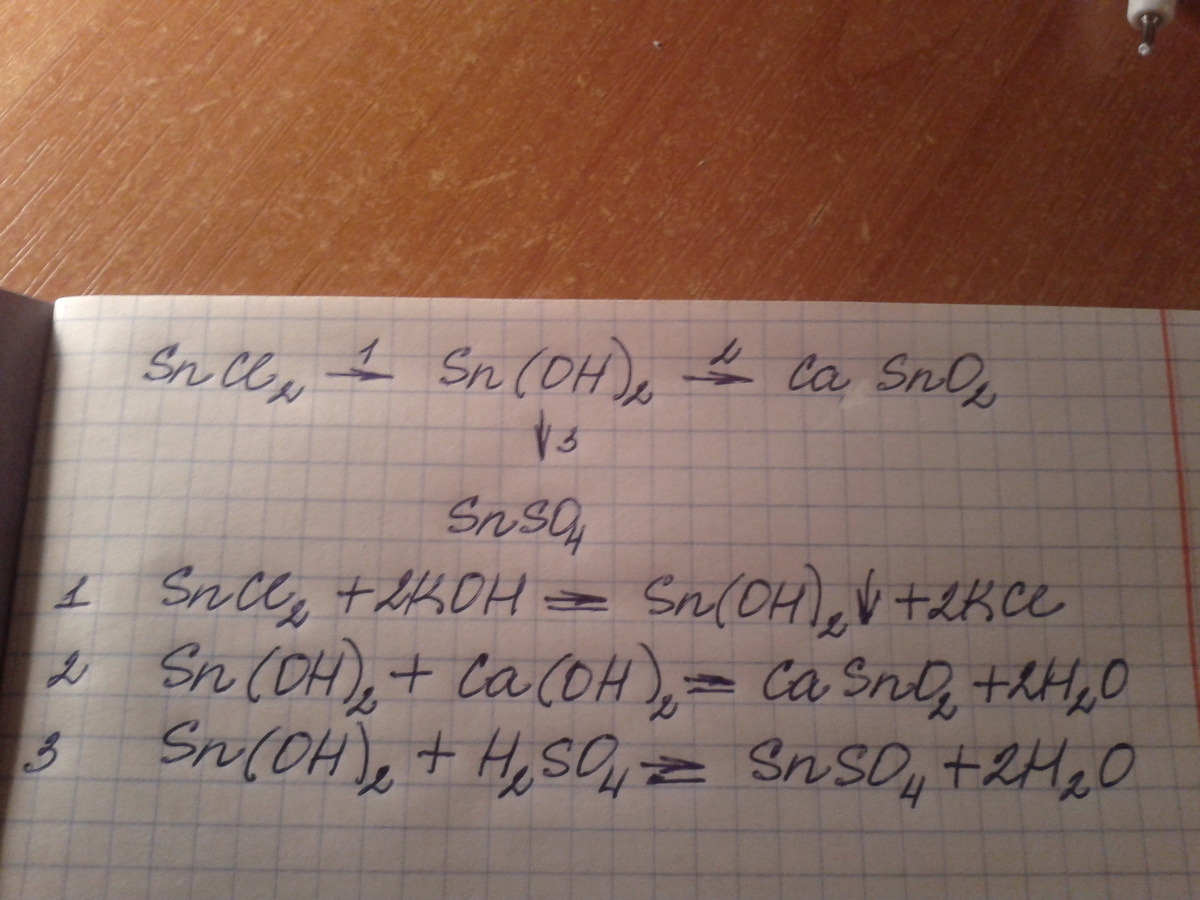 SnCl₂ →¹ Sn(OH)₂ →² CaSnO₂
↓3
SnSO₄
1 SnCl₂ + 2KOH = Sn(OH)₂↓ + 2KCl
2 Sn(OH)₂ + Ca(OH)₂ = CaSnO₂ + 2H₂O
3 Sn(OH)₂ + H₂SO₄ = SnSO₄ + 2H₂O